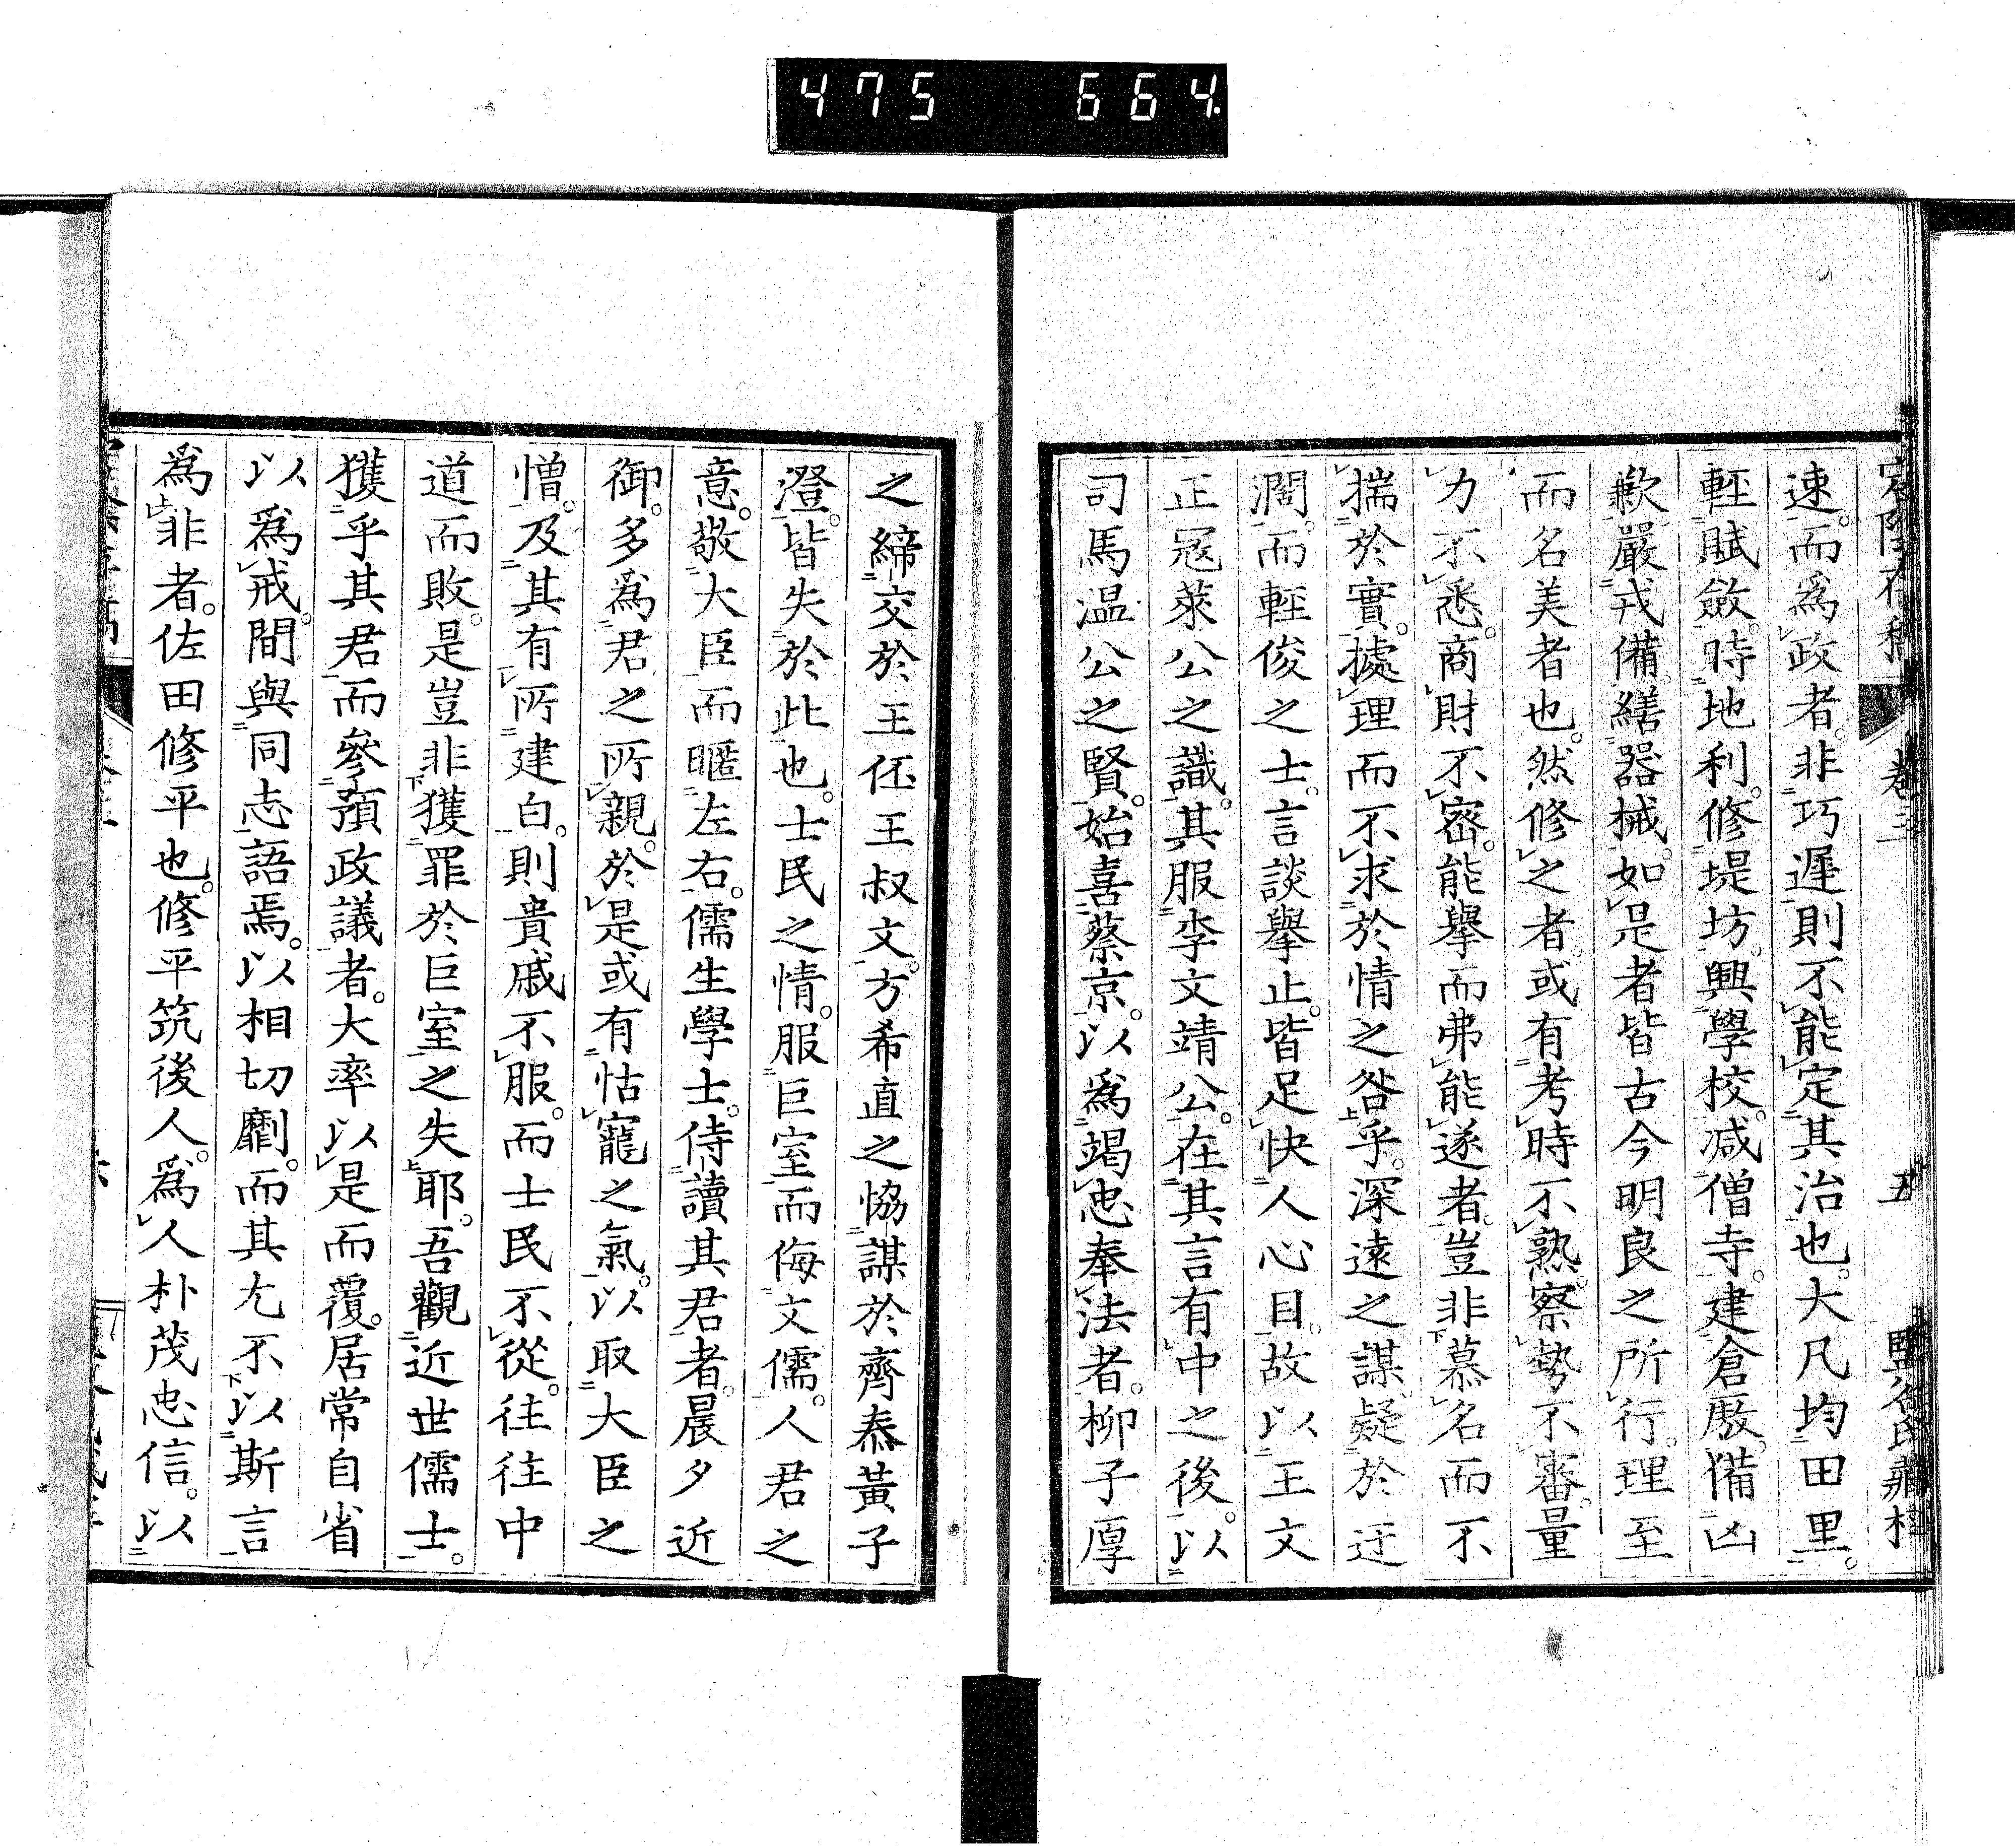 475 664
宕陰存稿 卷三 五 鹽谷氏藏板
速。而爲政者。非巧遲則不能定其治也。大凡均田里。
輕賦斂。時地利。修堤坊。興學校。減僧寺。建倉廒。備凶
歉。嚴戎備。繕器械。如是者皆古今明良之所行。理至
而名美者也。然修之者。或有考時不熟。察勢不審。量
力不悉。商財不密。能擧而弗能遂者。豈非慕名而不
揣於實。據理而不求於情之咎乎。深遠之謀疑於迂
濶。而輕俊之士。言談擧止。皆足快人心目。故以王文
正冦萊公之識。其服李文靖公。在其言有中之後。以
司馬温公之賢。始喜蔡京。以爲竭忠奉法者。柳子厚
之締交於王伾王叔文。方希直之恊謀於齊泰黃子
澄。皆失於此也。士民之情。服巨室而侮文儒。人君之
意。敬大臣而暱左右。儒生學士。侍讀其君者。晨夕近
御。多爲君之所親。於是或有怙寵之氣。以取大臣之
憎。及其有所建白。則貴戚不服。而士民不從。往往中
道而敗。是豈非獲罪於巨室之失耶。吾觀近世儒士。
獲乎其君而參預政議者。大率以是而覆。居常自省
以爲戒。間與同志語焉。以相切劘。而其尤不以斯言
爲非者。佐田修平也。修平筑後人。爲人朴茂忠信。以